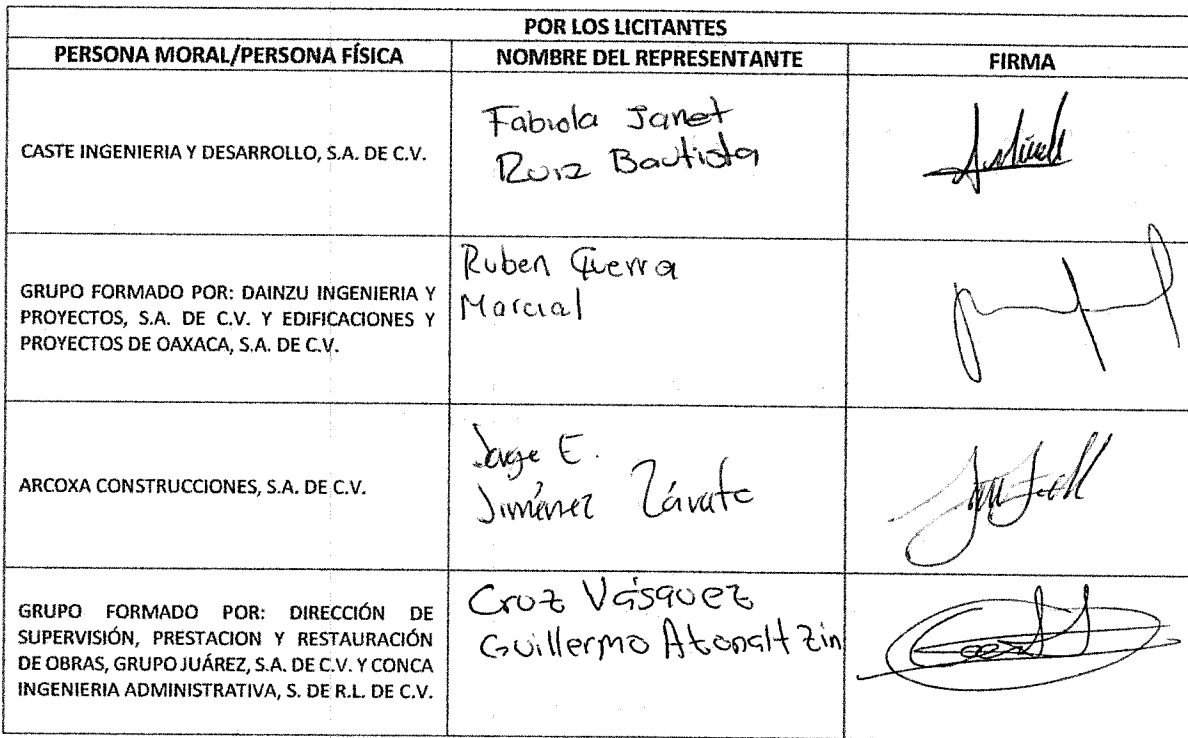 POR LOS LICITANTES
PERSONA MORAL/PERSONA FÍSICA NOMBRE DEL REPRESENTANTE FIRMA
CASTE INGENIERIA Y DESARROLLO, S.A. DE C.V.
Fabiola Janet
Ruiz Bautista
GRUPO FORMADO POR: DAINZU INGENIERIA Y
PROYECTOS, S.A. DE C.V. Y EDIFICACIONES Y
PROYECTOS DE OAXACA, S.A. DE C.V.
Ruben Guerra
Marcial
ARCOXA CONSTRUCCIONES, S.A. DE C.V.
Jorge E.
Jiménez Zárate
GRUPO FORMADO POR: DIRECCIÓN DE
SUPERVISIÓN, PRESTACION Y RESTAURACIÓN
DE OBRAS, GRUPO JUÁREZ, S.A. DE C.V. Y CONCA
INGENIERIA ADMINISTRATIVA, S. DE R.L. DE C.V.
Cruz Vásquez
Guillermo Atonaltzin